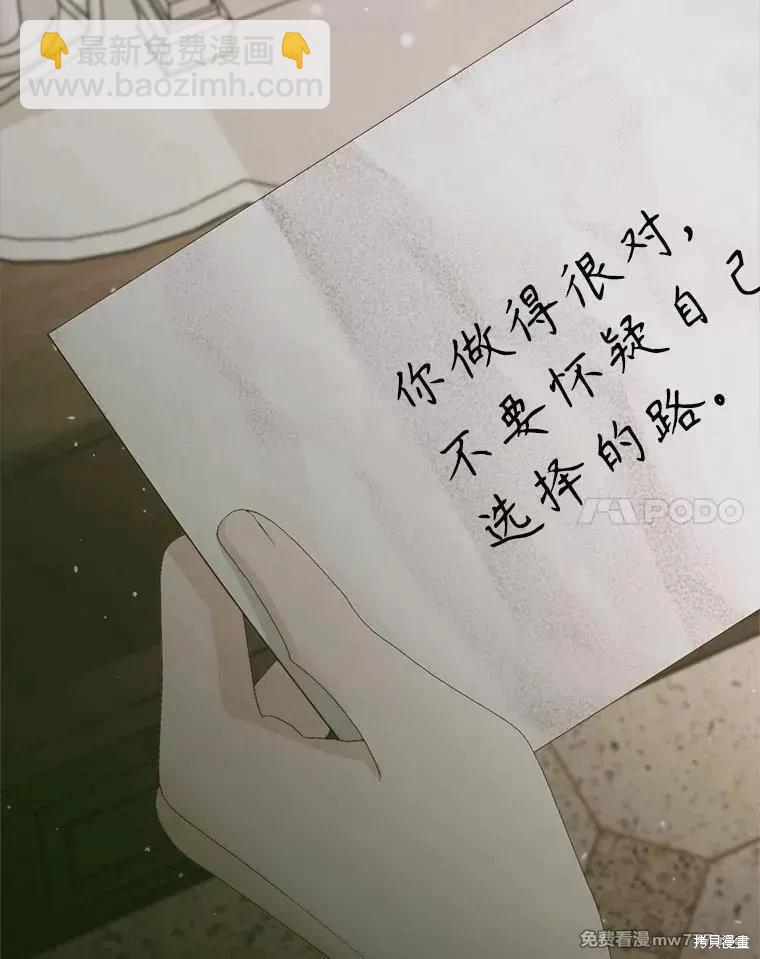 👇最新免费漫画👇
www.baozimh.com
你做得很对，
不要怀疑自己
选择的路。
PODO
免费看漫mw7
拷貝漫畫